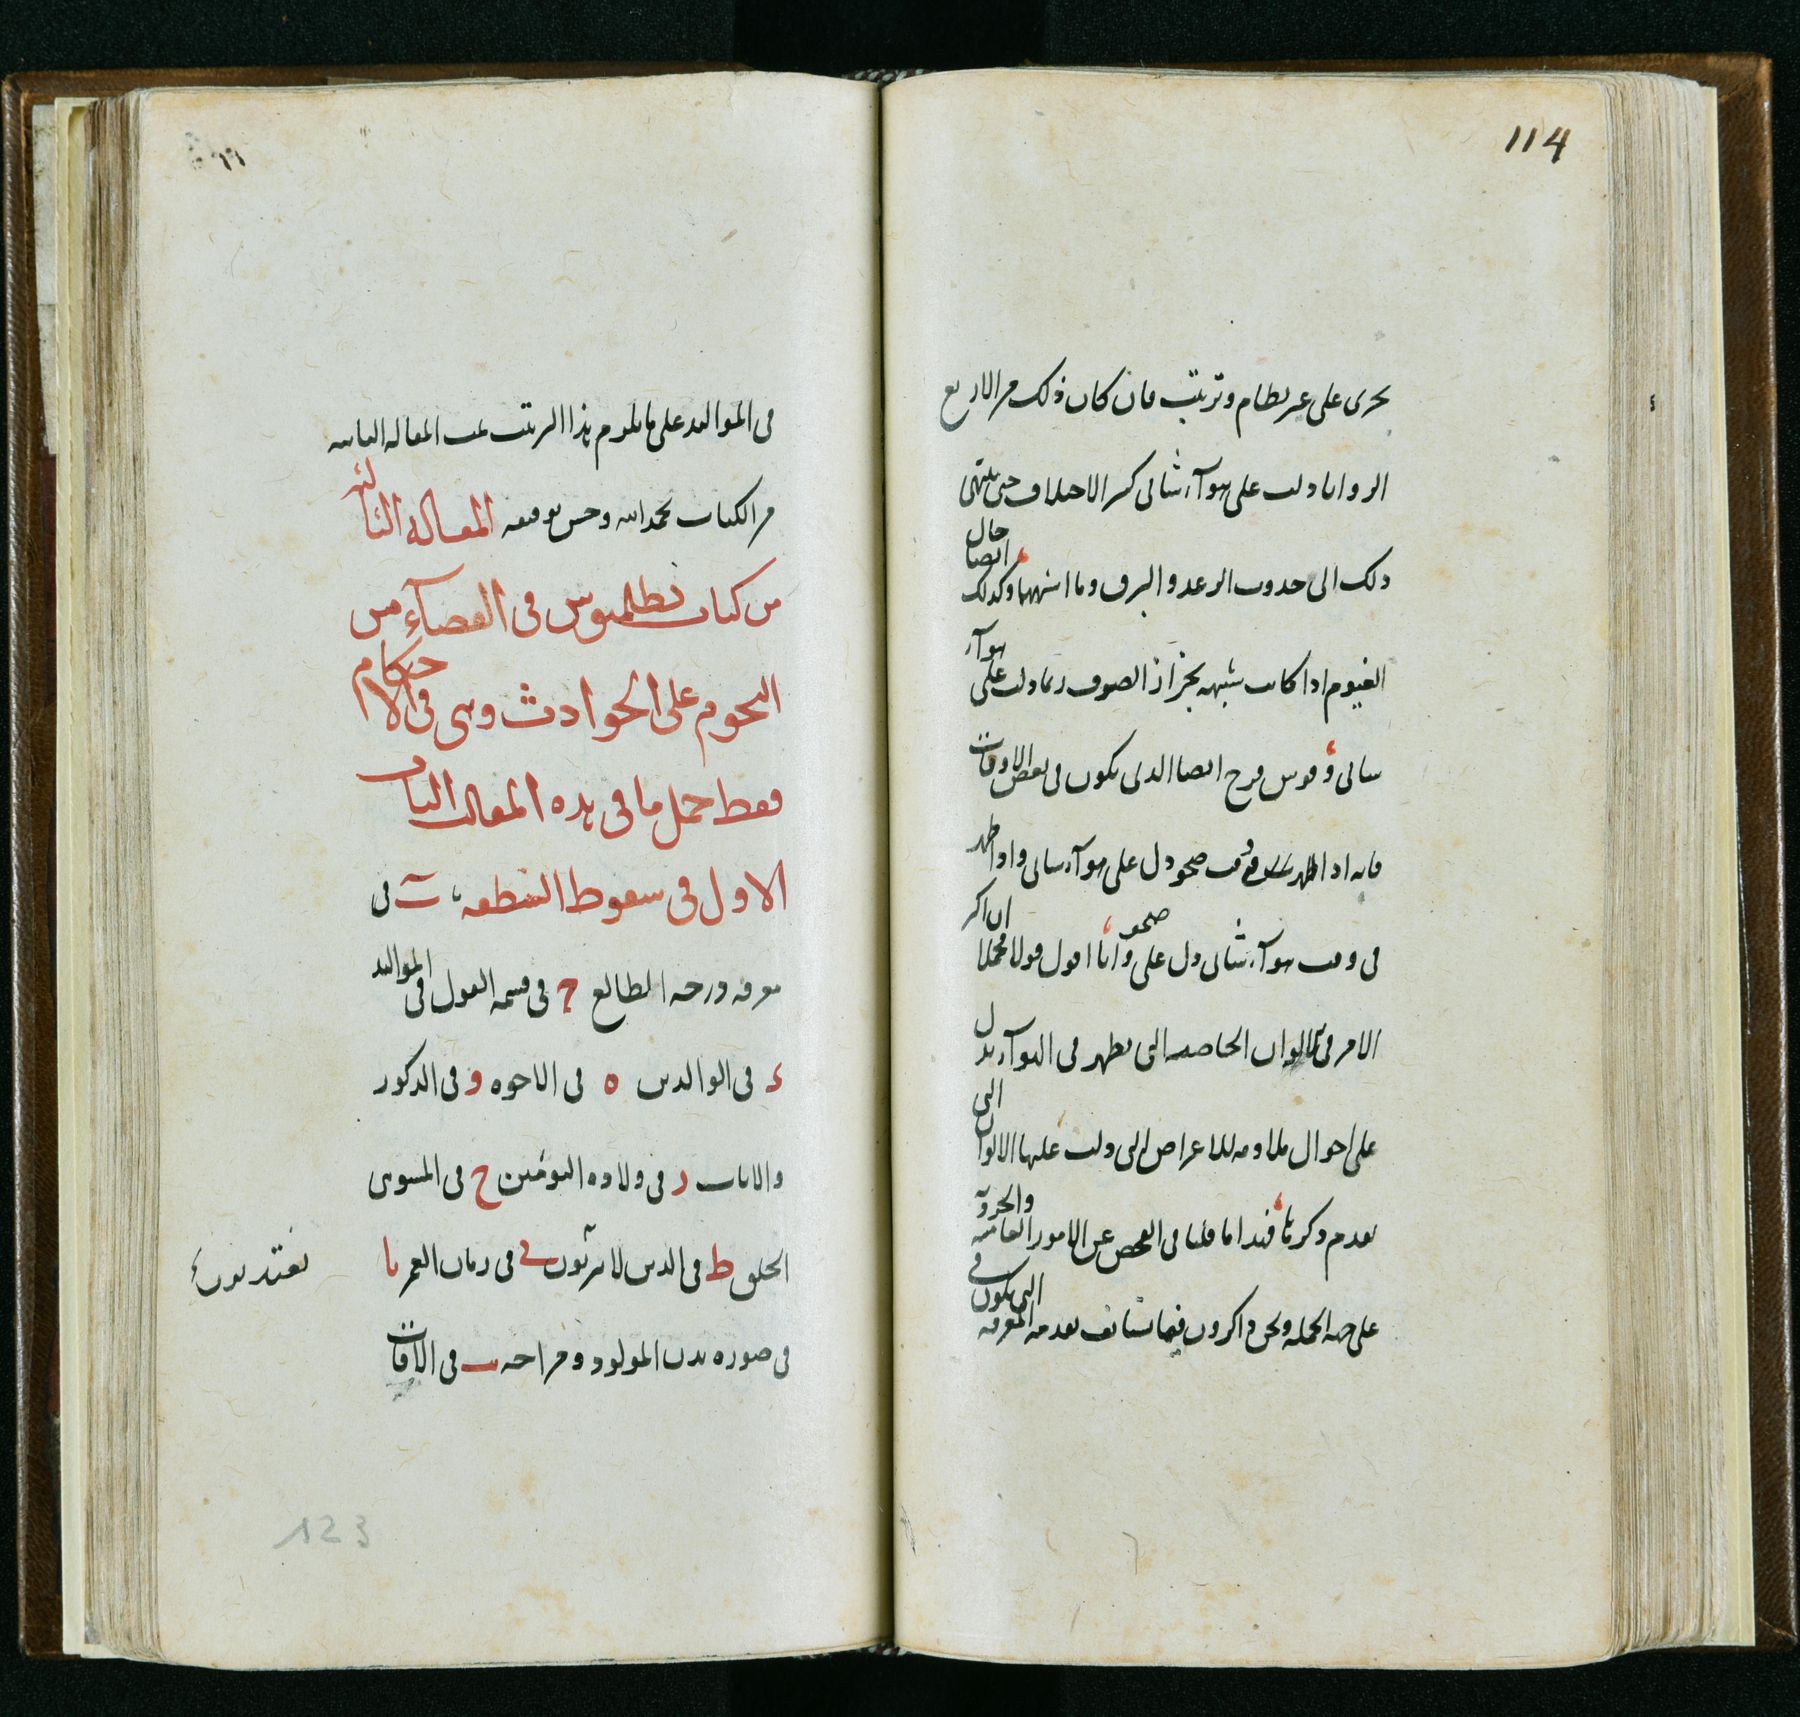 114
يجرى على غير نظام وترتيب فان كان ذلك من الاربع
الزوايا دلت على هوآء شاتى كثير الاختلاف حتى ينتهى حال
ذلك الى حدوث الرعد والبرق وما اشبههما وكذلك ايضا
الغيوم اذا كانت شبيهه بجزاز الصوف ربما دلت على هوآء
شاتى و قوس قزح ايضا الذى يكون فى بعض الاوقات
فانه اذا ظهر فى وقت صحو دل على هوآء شاتى واذا ظهر
فى وقت هوآء شاتى دل على صحو وانا اقول قولا مجملا ان اكثر
الامر فى الالوان الخاصه التى تظهر فى الهوآء يدل
على احوال ملاومه للاعراض التى دلت عليها الالوان التى
تقدم ذكرنا فهذا ما قلنا فى الفحص عن الامور العاميه والجزويه
على جهه الجمله ونحن ذاكرون فيما نستانف تقدمه المعرفه التى يكون فى
فى المواليد على ما يلزم هذا الترتيب تمت المقاله الثانيه
من الكتاب بحمد الله وحسن توفيقه المقاله الثالثه
من كتاب بطلميوس فى القضآء من
النجوم على الحوادث وهى فى الاحكام
فقط جمل ما فى هذه المقاله الباب
الاول فى سقوط النطفه ب فى
معرفه درجه الطالع ج فى قسمه القول فى المواليد
د فى الوالدين ه فى الاخوه و فى الذكور
والاناث ز فى ولاده التوءمين ح فى المشوهى
الخلق ط فى الذين لا يربون ى فى زمان العمر يا
فى صوره بدن المولود ومزاجه يب فى الآفات
123